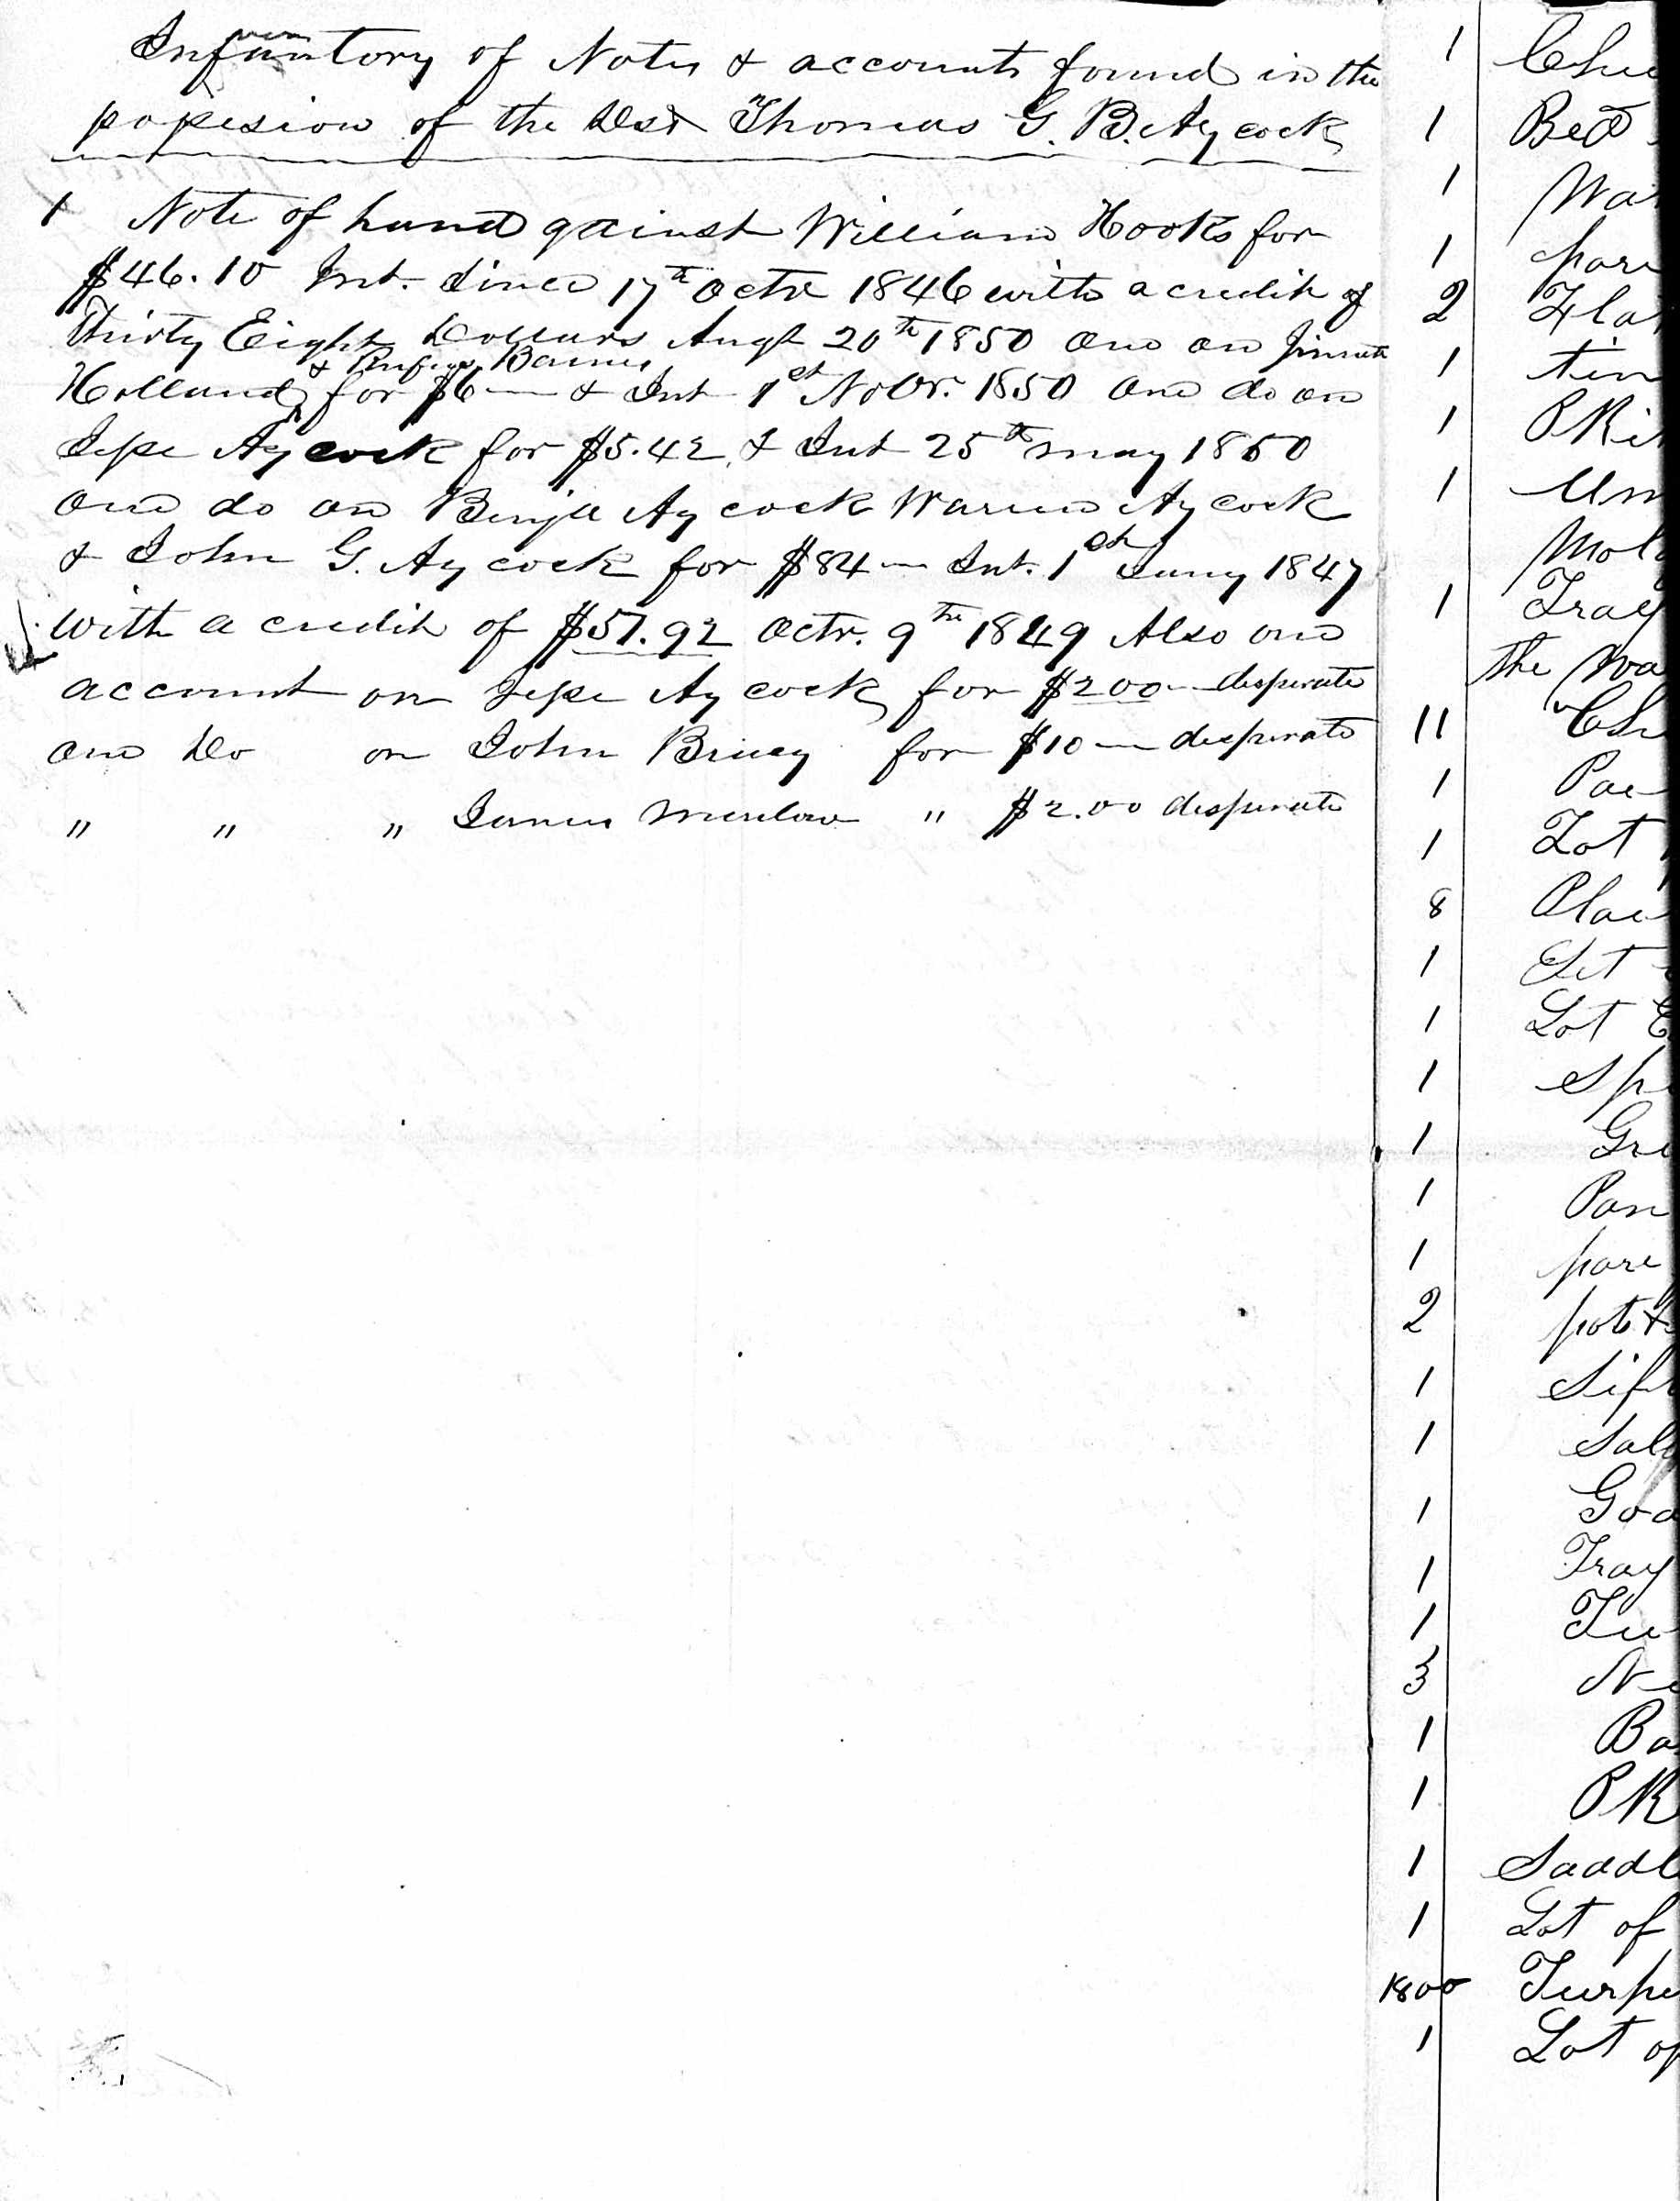 Infventory of Notes & accounts found in the
possesion of the Desd Thomas G. B. Aycock
1 Note of hand gainst William Hooks for
$46.10 Int. Since 17th Octr 1846 with a credit of
Thirty Eight Dollars Augt 20th 1850 one on
& Rufus Barnes
Holland for $6 — & Int 1st Nobr. 1850 one do on
Jesse Aycock for $5.42 & Int 25th may 1850
one do on Benja Aycock Warren Aycock
& John G. Aycock for $84 — Int. 1st Jany 1847
with a credit of $57.92 Octr. 9th 1849 Also one
account on Jesse Aycock for $2.00 — desperate
one Do on John for $10 — desperate
" " " James " $2.00 desperate
1 Che
1 Bed
1 Wa
1 pare
2 Fla
1 tin
1 Pki
1 Um
Mol
1 Tray
the Wa
11 Ch
1 Pa
1 Lot
8 Pla
1 Set
1 Lot
1 Sp
1 Gr
1 Pan
1 pare
2 pot
1 Sif
1 Sal
1 Go
1 Tray
1 Tu
3 Ne
1 Ba
1 PK
1 Saddl
1 Lot of
1800 Turpe
1 Lot of